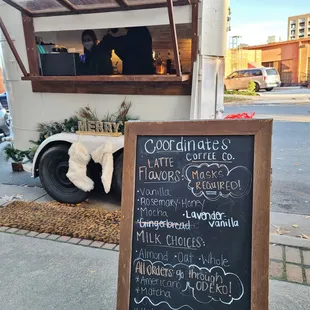 MERRY
Coordinates
COFFEE CO.
LATTE
FLAVORS:
MASKS
REQUIRED!
- Vanilla
- Rosemary-Honey
- Mocha
- Lavender-
vanilla
- Gingerbread
MILK CHOICES:
- Almond - Oat - Whole
All orders go through
ODEKO!
* Americano
* Matcha